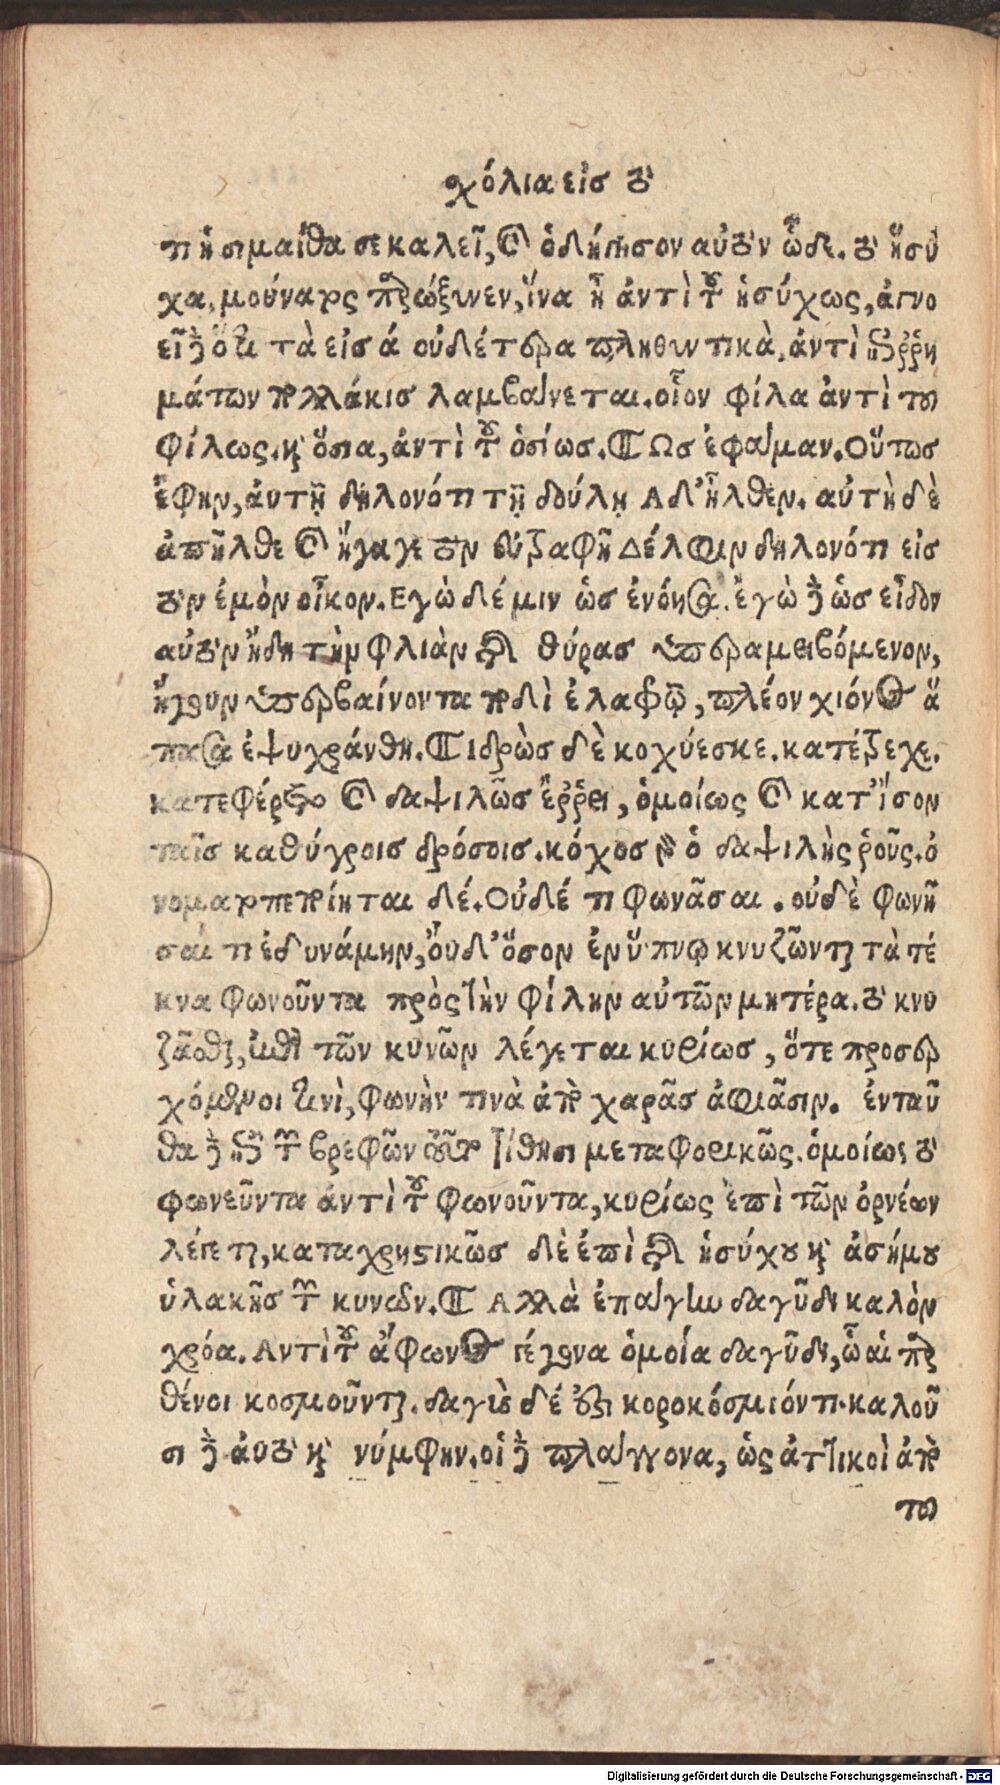 χόλια εἰσ τὸ
τι ἡ σιμαίθα σε καλεῖ, καὶ ὁδήγησον αὐτὸν ὧδε. τὸ ἥσυ
χα, μούναρος παρώξυνεν, ἵνα ἦ ἀντὶ τοῦ ἡσύχως, ἀγνο
εῖ γὰρ ὅτι τὰ εἰσ ά οὐδέτερα πληθυντικὰ, ἀντὶ ἐπιρρη
μάτων πολλάκισ λαμβάνεται. οἷον φίλα ἀντὶ του
φίλως. καὶ ὅσια, ἀντὶ τοῦ ὁσίωσ. Ωσ ἐφάμαν. Οὕτωσ
ἔφην, ἀυτῇ δηλονότι τῇ δούλῃ Αδ' ἦλθεν. αὐτὴ δὲ
ἀπῆλθε καὶ ἤγαγε τὸν εὐσαφῆ Δέλφιν δηλονότι εἰσ
τὸν ἐμὸν οἶκον. Εγὼ δέ μιν ὡσ ἐνόησα. ἐγὼ γὰρ ὡσ εἶδον
αὐτὸν ἤδη τὴν φλιὰν τῆσ θύρασ ὑπεραμειβόμενον,
ἤγουν ὑπερβαίνοντα ποδὶ ἐλαφρῷ, πλέον χιόνος ἅ
πασα ἐψυχράνθη. Ιδρὼσ δὲ κοχύεσκε. κατέρρεχε.
κατεφέρετο καὶ δαψιλῶσ ἔρρει, ὁμοίως καὶ κατ' ἴσον
ταῖσ καθύγροισ δρόσοισ. κόχοσ γὰρ ὁ δαψιλὴς ροῦς. ὀ
νομαρπεποίηται δέ. Οὐδέ τι φωνᾶσαι. οὐδὲ φωνῆ
σαί τι ἐδυνάμην, οὐδ' ὅσον ἐν ὕπνῳ κνυζῶνται τὰ τέ
κνα φωνοῦντα πρὸς τὴν φίλην αὐτῶν μητέρα. τὸ κνυ
ζᾶσθαι, ἐπὶ τῶν κυνῶν λέγεται κυρίωσ, ὅτε προσερ
χόμενοι τινὶ, φωνὴν τινὰ ἀπὸ χαρᾶσ ἀφιᾶσιν. ἐνταῦ
θα γὰρ ἐπὶ τῶν βρεφῶν τοῦτο τίθησι μεταφορικῶς. ὁμοίως τὸ
φωνεῦντα ἀντὶ τοῦ φωνοῦντα, κυρίως ἐπὶ τῶν ὀρνέων
λέγεται, καταχρηστικῶσ δὲ ἐπὶ τῆσ ἡσύχου καὶ ἀσήμου
ὑλακῆσ τῶν κυνῶν. Αλλὰ ἐπάγην δαγῦδι καλὸν
χρόα. Αντὶ τοῦ ἄφωνος γέγονα ὁμοία δαγῦδι, ᾧ αἱ παρ
θένοι κοσμοῦνται. δαγὺσ δέ ἐστι κοροκόσμιόν τι. καλοῦ
σι γὰρ ἀυτὸ καὶ νύμφην. οἱ γὰρ πλάγγονα, ὡς ἀττικοὶ ἀπὸ
του
Digitalisierung gefördert durch die Deutsche Forschungsgemeinschaft - DFG